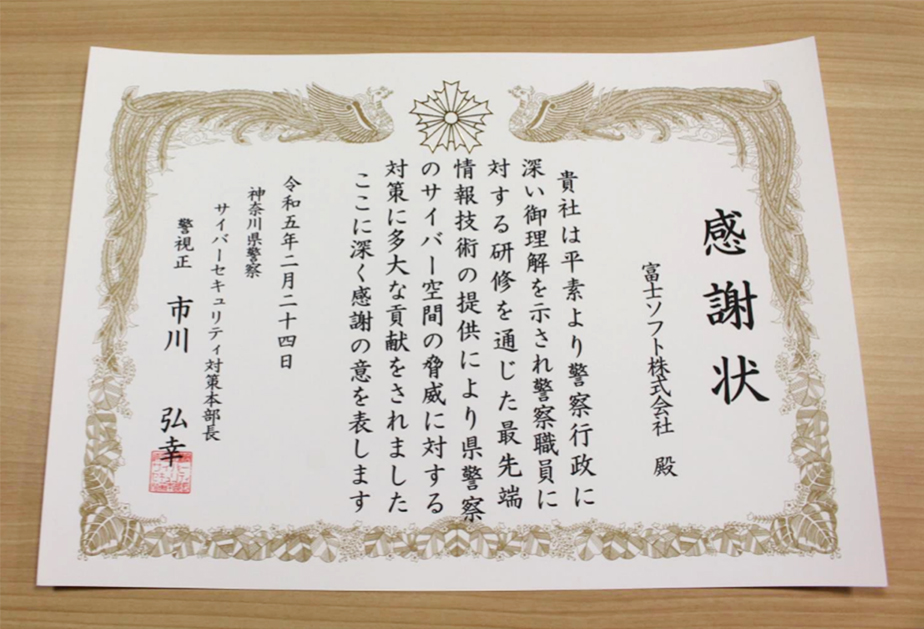 感謝状
富士ソフト株式会社 殿
貴社は平素より警察行政に
深い御理解を示され警察職員に
対する研修を通じた最先端
情報技術の提供により県警察
のサイバー空間の脅威に対する
対策に多大な貢献をされました
ここに深く感謝の意を表します
令和五年二月二十四日
神奈川県警察
サイバーセキュリティ対策本部長
警視正 市川 弘幸